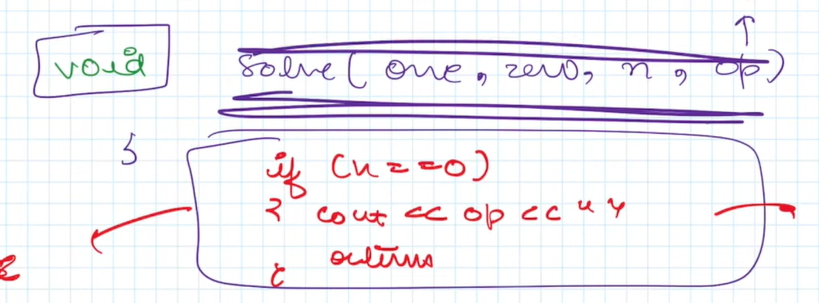 void solve( one, zero, n, op)
{
if (n==0)
{ cout << op << " "
return
}